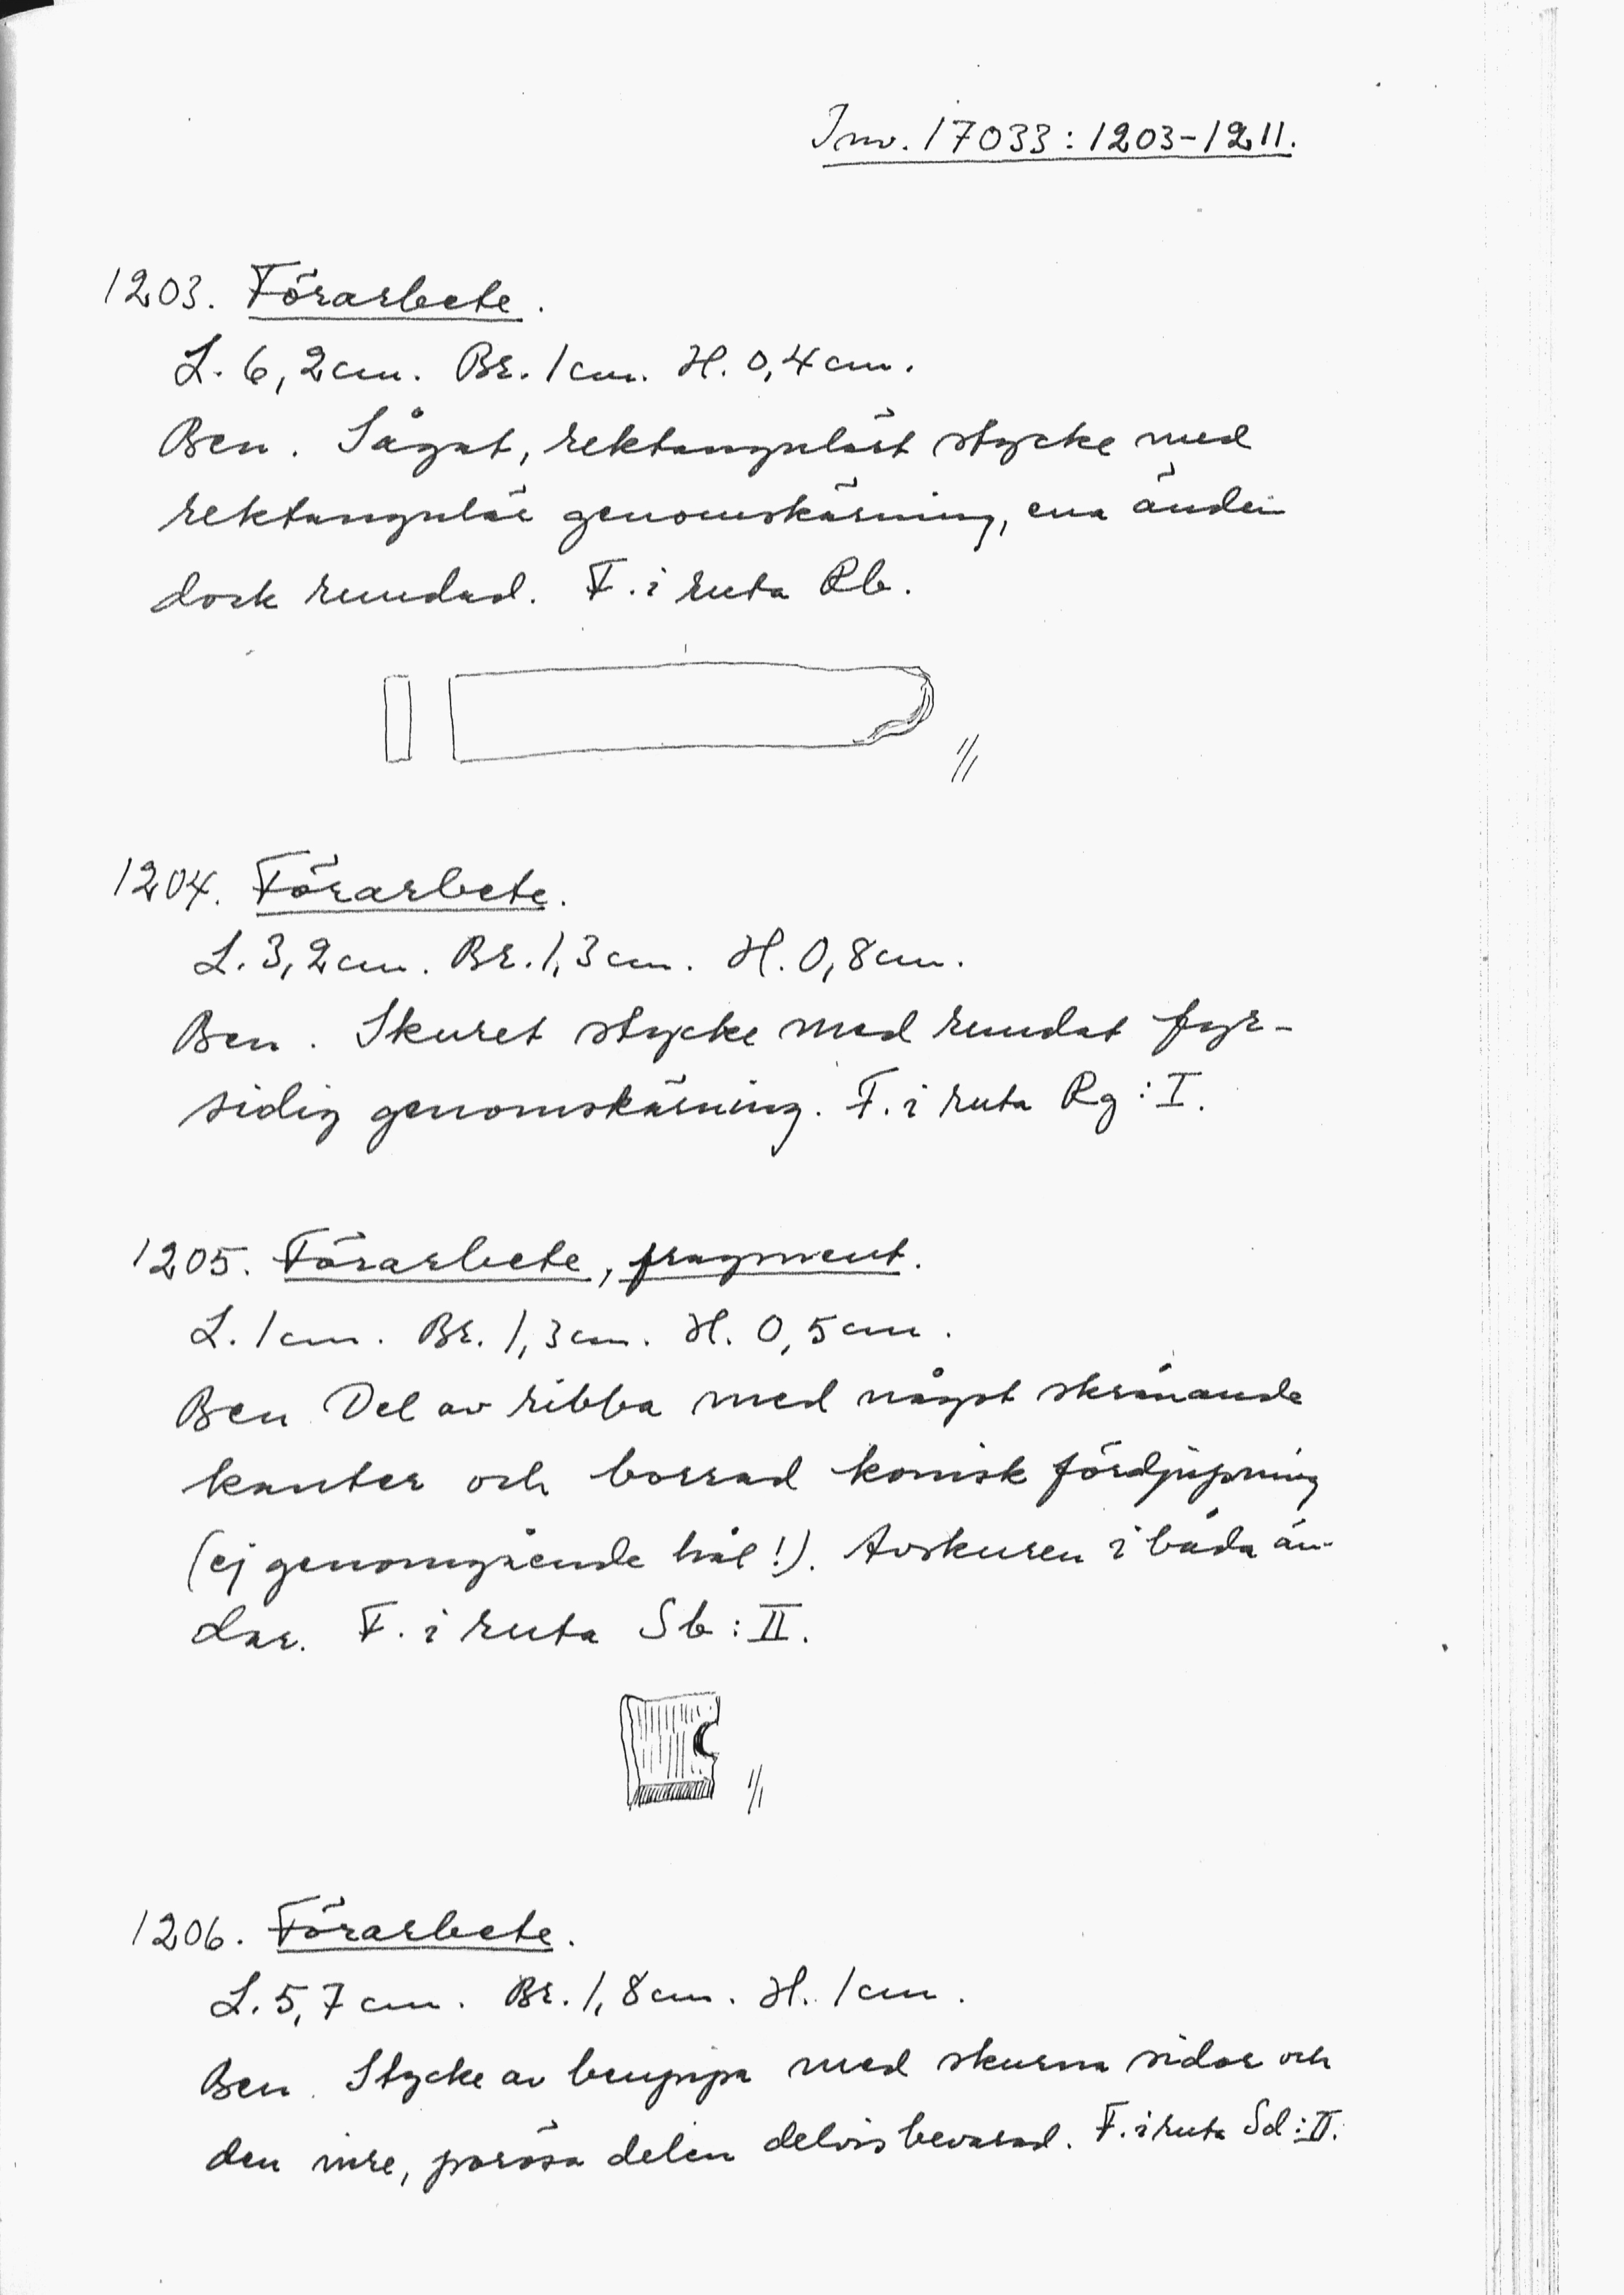 Inv. 17033: 1203-1211.
1203. Förarbete.
L. 6,2 cm. Br. 1 cm. H. 0,4 cm.
Ben. Sågat, rektangulärt stycke med
rektangulär genomskärning, ena änden
dock rundad. F. i ruta Rb.
1/1
1204. Förarbete.
L. 3,2 cm. Br. 1,3 cm. H. 0,8 cm.
Ben. Skuret stycke med rundat fyr-
sidig genomskärning. F. i ruta Rg: I.
1205. Förarbete, fragment.
L. 1 cm. Br. 1,3 cm. H. 0,5 cm.
Ben Del av ribba med något skrånande
kanter och borrad konisk fördjupning
(ej genomgående hål!). Avskuren i båda än-
dar. F. i ruta Sb: II.
1/1
1206. Förarbete.
L. 5,7 cm. Br. 1,8 cm. H. 1 cm.
Ben. Stycke av benpipa med skurna sidor och
den inre, porösa delen delvis bevarad. F. i ruta Sd: II.